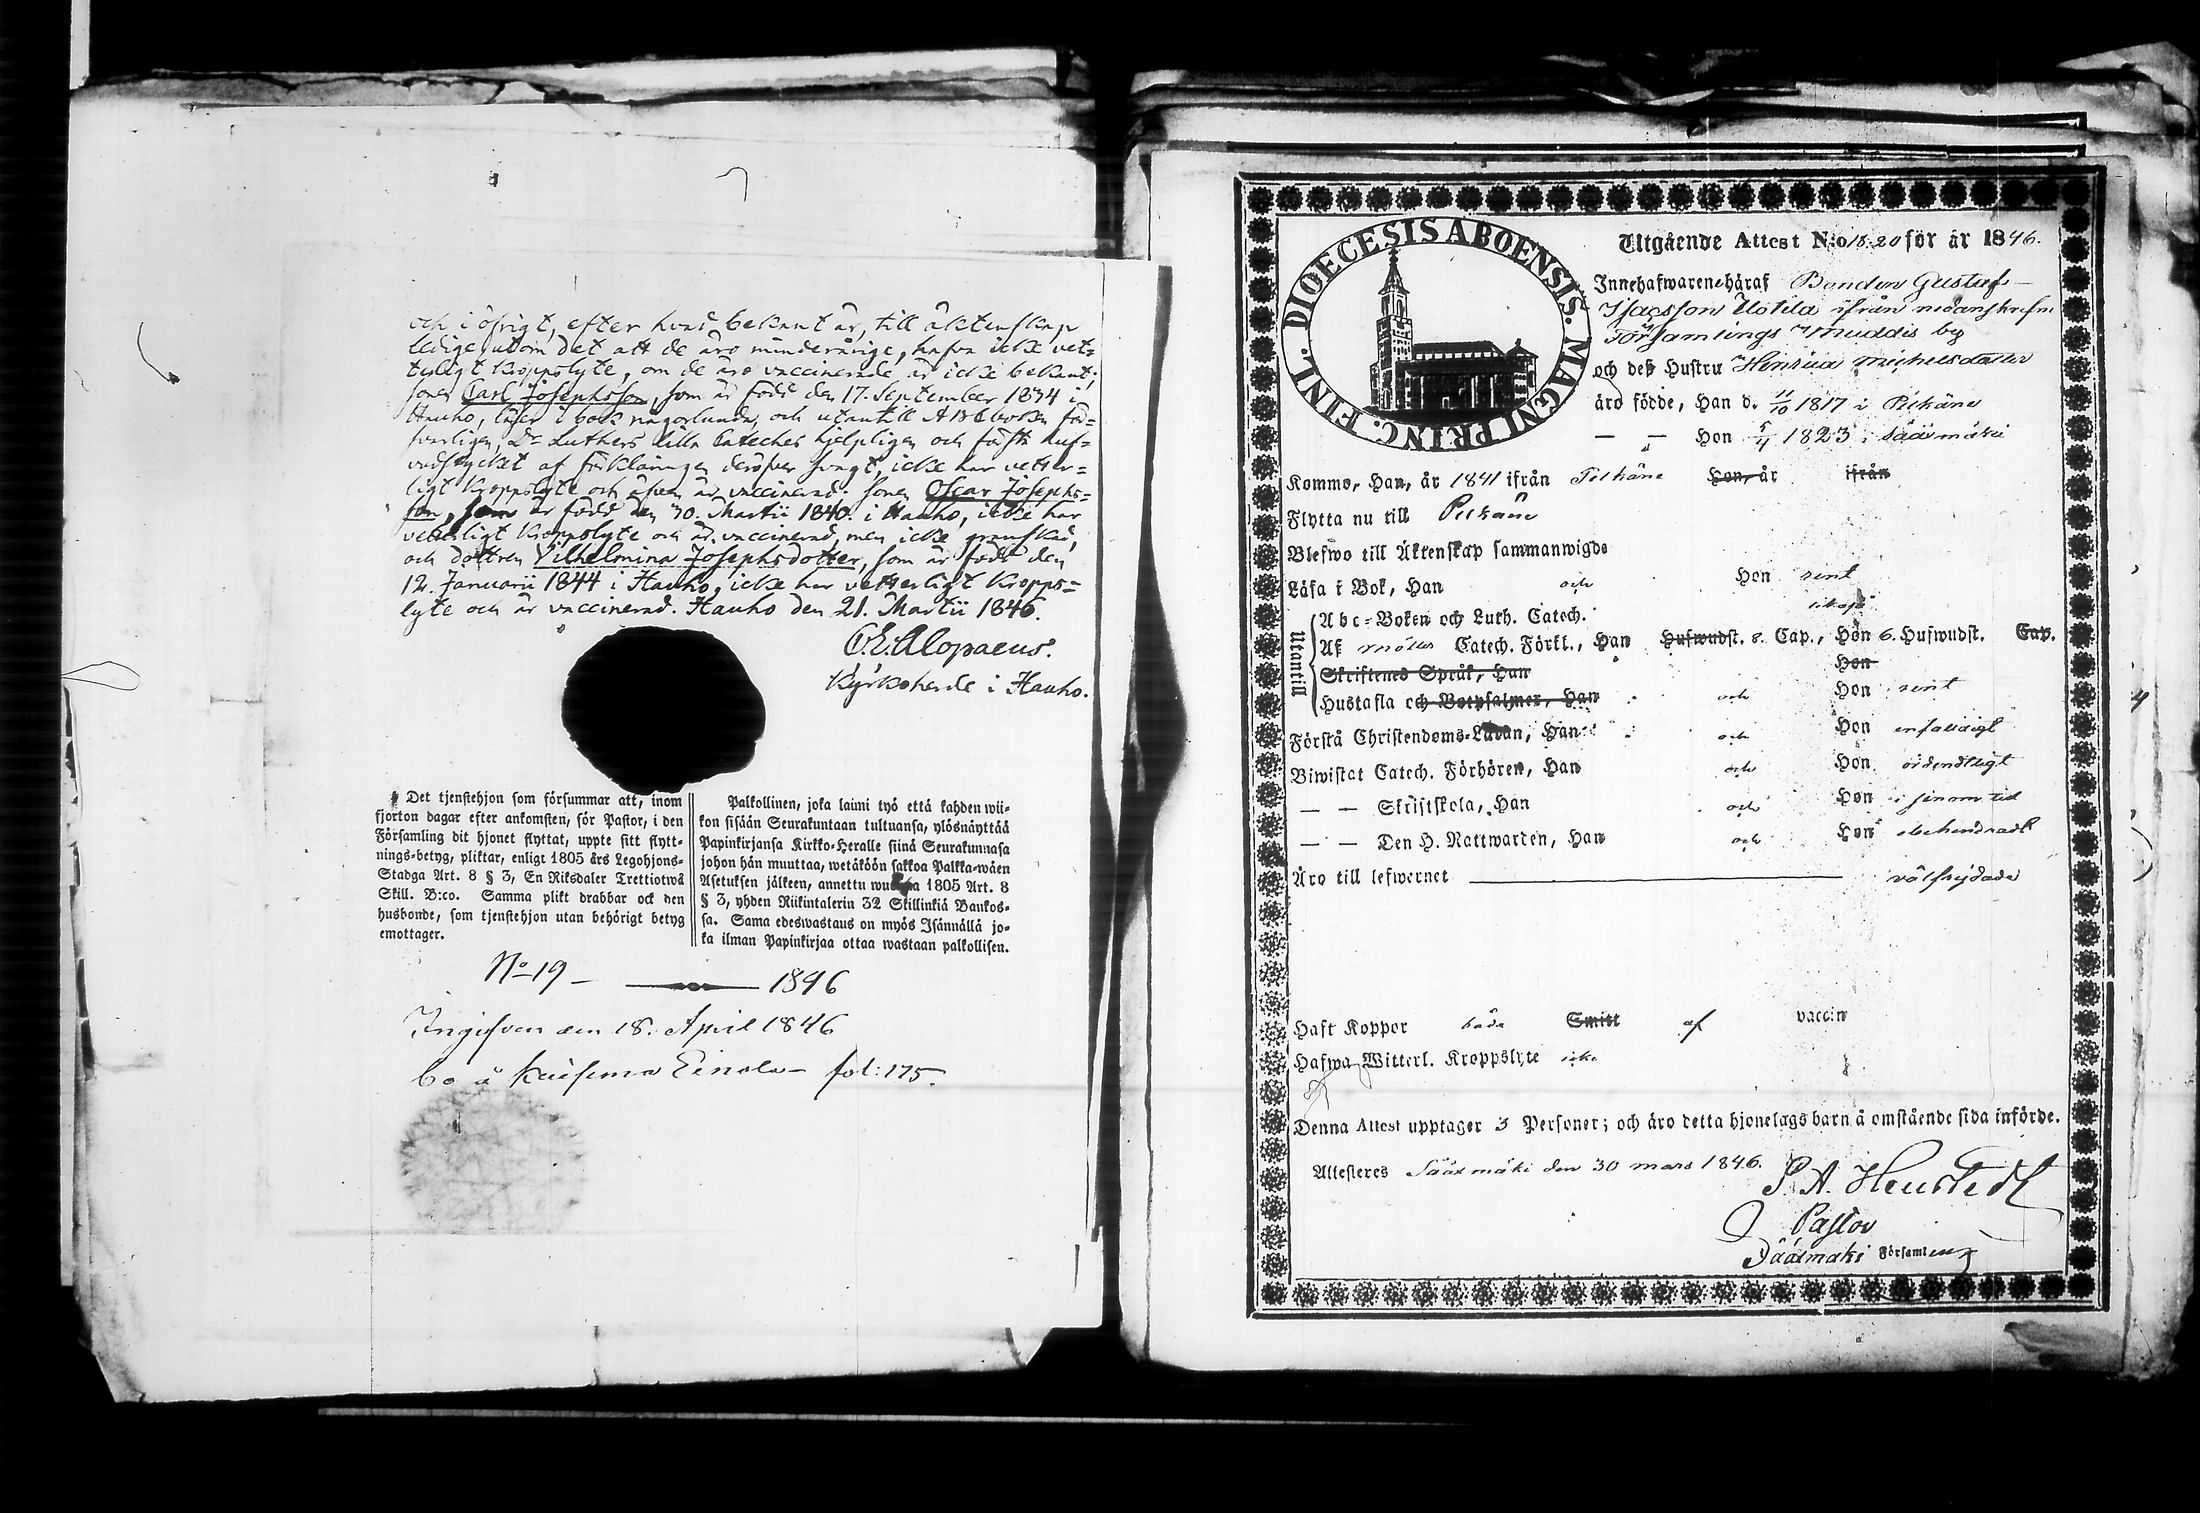 och i öfrigt, efter hvad bekant är, till äktenskap
ledige, utom det att de äro minderårige, hafva icke vet-
terligt kroppslyte, om de äro vaccinerade är icke bekant;
sonen Carl Josephsson, som är född den 17. September 1834 i
Hauho, läser i bok någorlunda, och utantill ABCboken för-
svarligen, Dr Luthers lilla Cateches hjelpligen och första huf-
vudstycket af förklaringen deröfver svagt, icke har vetter-
ligt kroppslyte och äfven är vaccinerad; sonen Oscar Josephs-
son, som är född den 30. Martii 1840. i Hauho, icke har
vetterligt kroppslyte och är vaccinerad, men icke granskad,
och dottren Vilhelmina Josephsdotter, som är född den
12. Januarii 1844 i Hauho, icke har vetterligt kropps-
lyte och är vaccinerad. Hauho den 21. Martii 1846.
Alopaeus.
Kyrkoherde i Hauho.
Det tjenstehjon som försummar att, inom
fjorton dagar efter ankomsten, för Pastor, i den
Församling dit hjonet flyttat, uppte sitt flytt-
nings-betyg, pliktar, enligt 1805 års Legohjons-
Stadga Art. 8 § 3, En Riksdaler Trettiotwå
Skill. B:co. Samma plikt drabbar ock den
husbonde, som tjenstehjon utan behörigt betyg
emottager.
Palkollinen, joka laimi työ että kahden wii-
kon sisään Seurakuntaan tultuansa, ylösnäyttää
Papinkirjansa Kirkko-Heralle siinä Seurakunnasa
johon hän muuttaa, wetäköön sakkoa Palkka-wäen
Asetuksen jälkeen, annettu wuonna 1805 Art. 8
§ 3, yhden Riikintalerin 32 Skillinkiä Bankos-
sa. Sama edeswastaus on myös Isännällä jo-
ka ilman Papinkirjaa ottaa wastaan palkollisen.
No 19 — 1846
Ingifven den 18. April 1846
Einola fol: 175.
DIOECESIS ABOENSIS. MAGNI PRINC. FINL.
Utgående Attest N:o 18.20 för år 1846.
Innehafwarenehäraf Bonden Gustaf
Isacsson Uotila ifrån nedanskrefne
Församlings Muddis by
och deß Hustru Henrica Michelsdotter
äro födde, Han d. 11/10 1817 i Pelkäne
— — Hon 5/4 1823 i Sääxmäki
Kommo, Han, år 1841 ifrån Pelkäne Hon, år ifrån
Flytta nu till Pelkäne
Blefwo till Äktenskap sammanwigde
Läsa i Bok, Han och Hon rent
Utantill
Abc-Boken och Luth. Catech. likaså
Af Möllers Catech. Förkl., Han Hufwudst. 8. Cap., Hon 6. Hufwudst. Cap.
Skriftenes Språk, Han Hon
Hustafla och Botpsalmer, Han och Hon rent
Förstå Christendoms-Läran, Han och Hon enfaldigt
Biwistat Catech. Förhören, Han och Hon ordentligt
— — Skriftskola, Han och Hon i sinom tid
— — Den H. Nattwarden, Han och Hon obehindradt
Äro till lefwernet välfrejdade
Haft Koppor båda Smitt af vaccin
Hafwa Witterl. Kroppslyte icke
Denna Attest upptager 3 Personer; och äro detta hjonelags barn å omstående sida införde.
Attesteres Sääxmäki den 30 mars 1846.
Pastor
Sääxmäki Församling